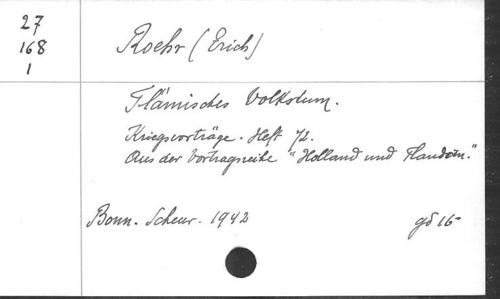 27
168
1
Roehr (Erich)
Flämisches Volkstum.
Kriegsvorträge. Heft 72.
Aus der Vortragsreihe "Holland und Flandern."
Bonn. Scheur. 1942
g8 16-